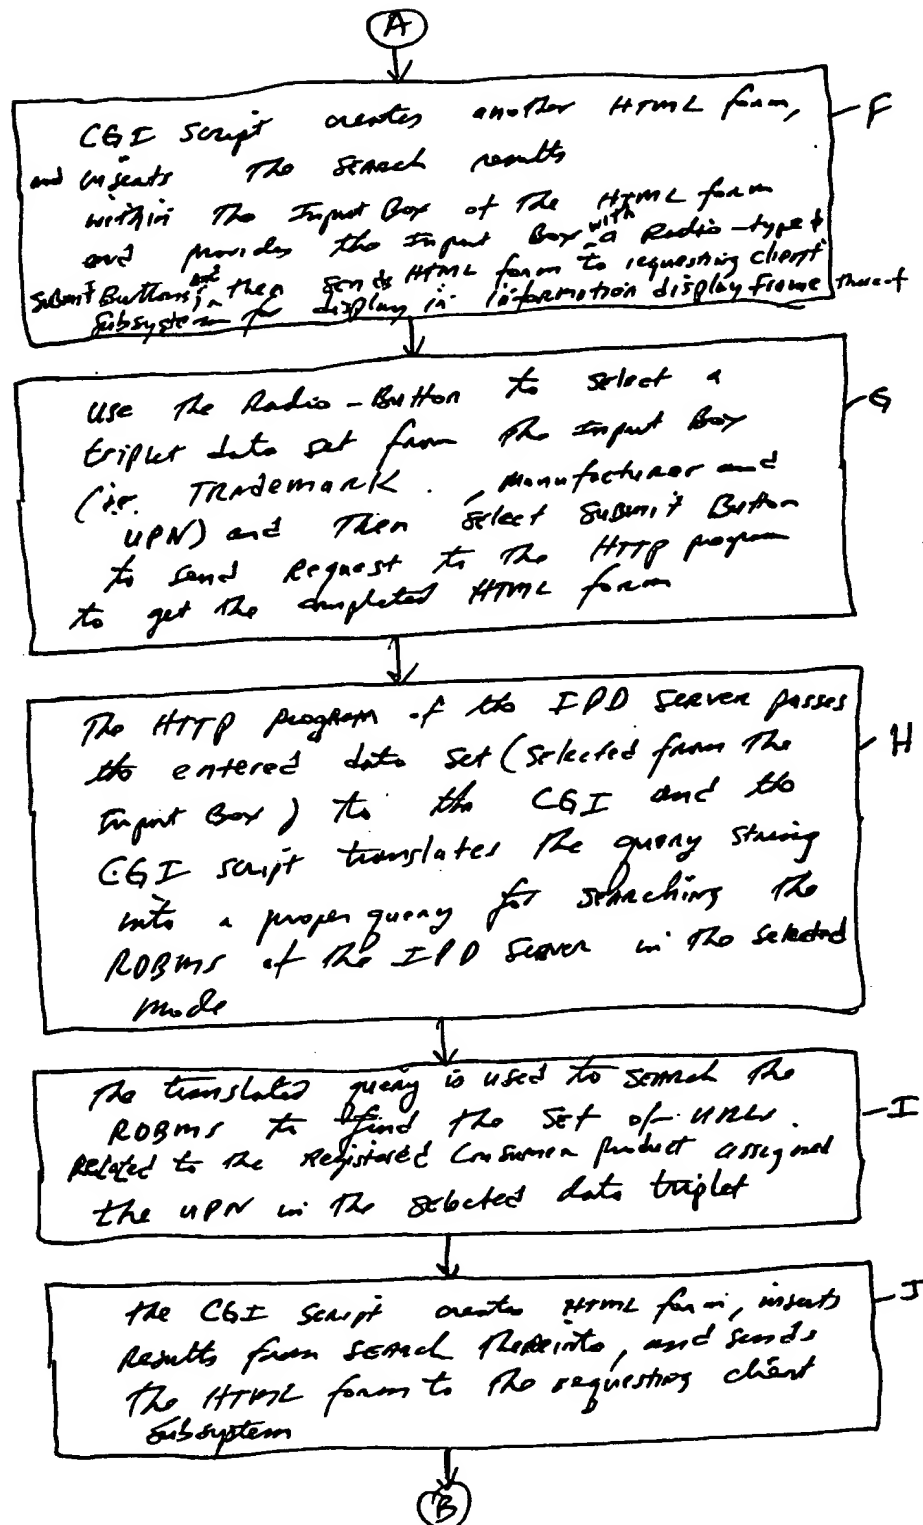 A
CGI Script creates another HTML form, F
and inserts The SEARCH results
within The Input Box of The HTML form
and provides the Input Box with a Radio-type &
Submit Buttons, and then sends HTML form to requesting client
Subsystem for display in information display frame thereof
Use The Radio-Button to select a G
triplet data set from The Input Box
(i.e. TRADEMARK, Manufacturer and
UPN) and Then Select Submit Button
to send Request to The HTTP program
to get the completed HTML form
The HTTP program of the IPD SERVER passes H
the entered data set (Selected from The
Input Box) to the CGI and the
CGI script translates The query string
into a proper query for searching The
RDBMS of The IPD SERVER in The selected
mode
The translated query is used to SEARCH The I
RDBMS to find The Set of URLs
Related to the Registered Consumer product assigned
the UPN in The selected data triplet
the CGI Script creates HTML form, inserts J
Results from SEARCH Thereinto, and sends
The HTML form to The requesting client
Subsystem
B